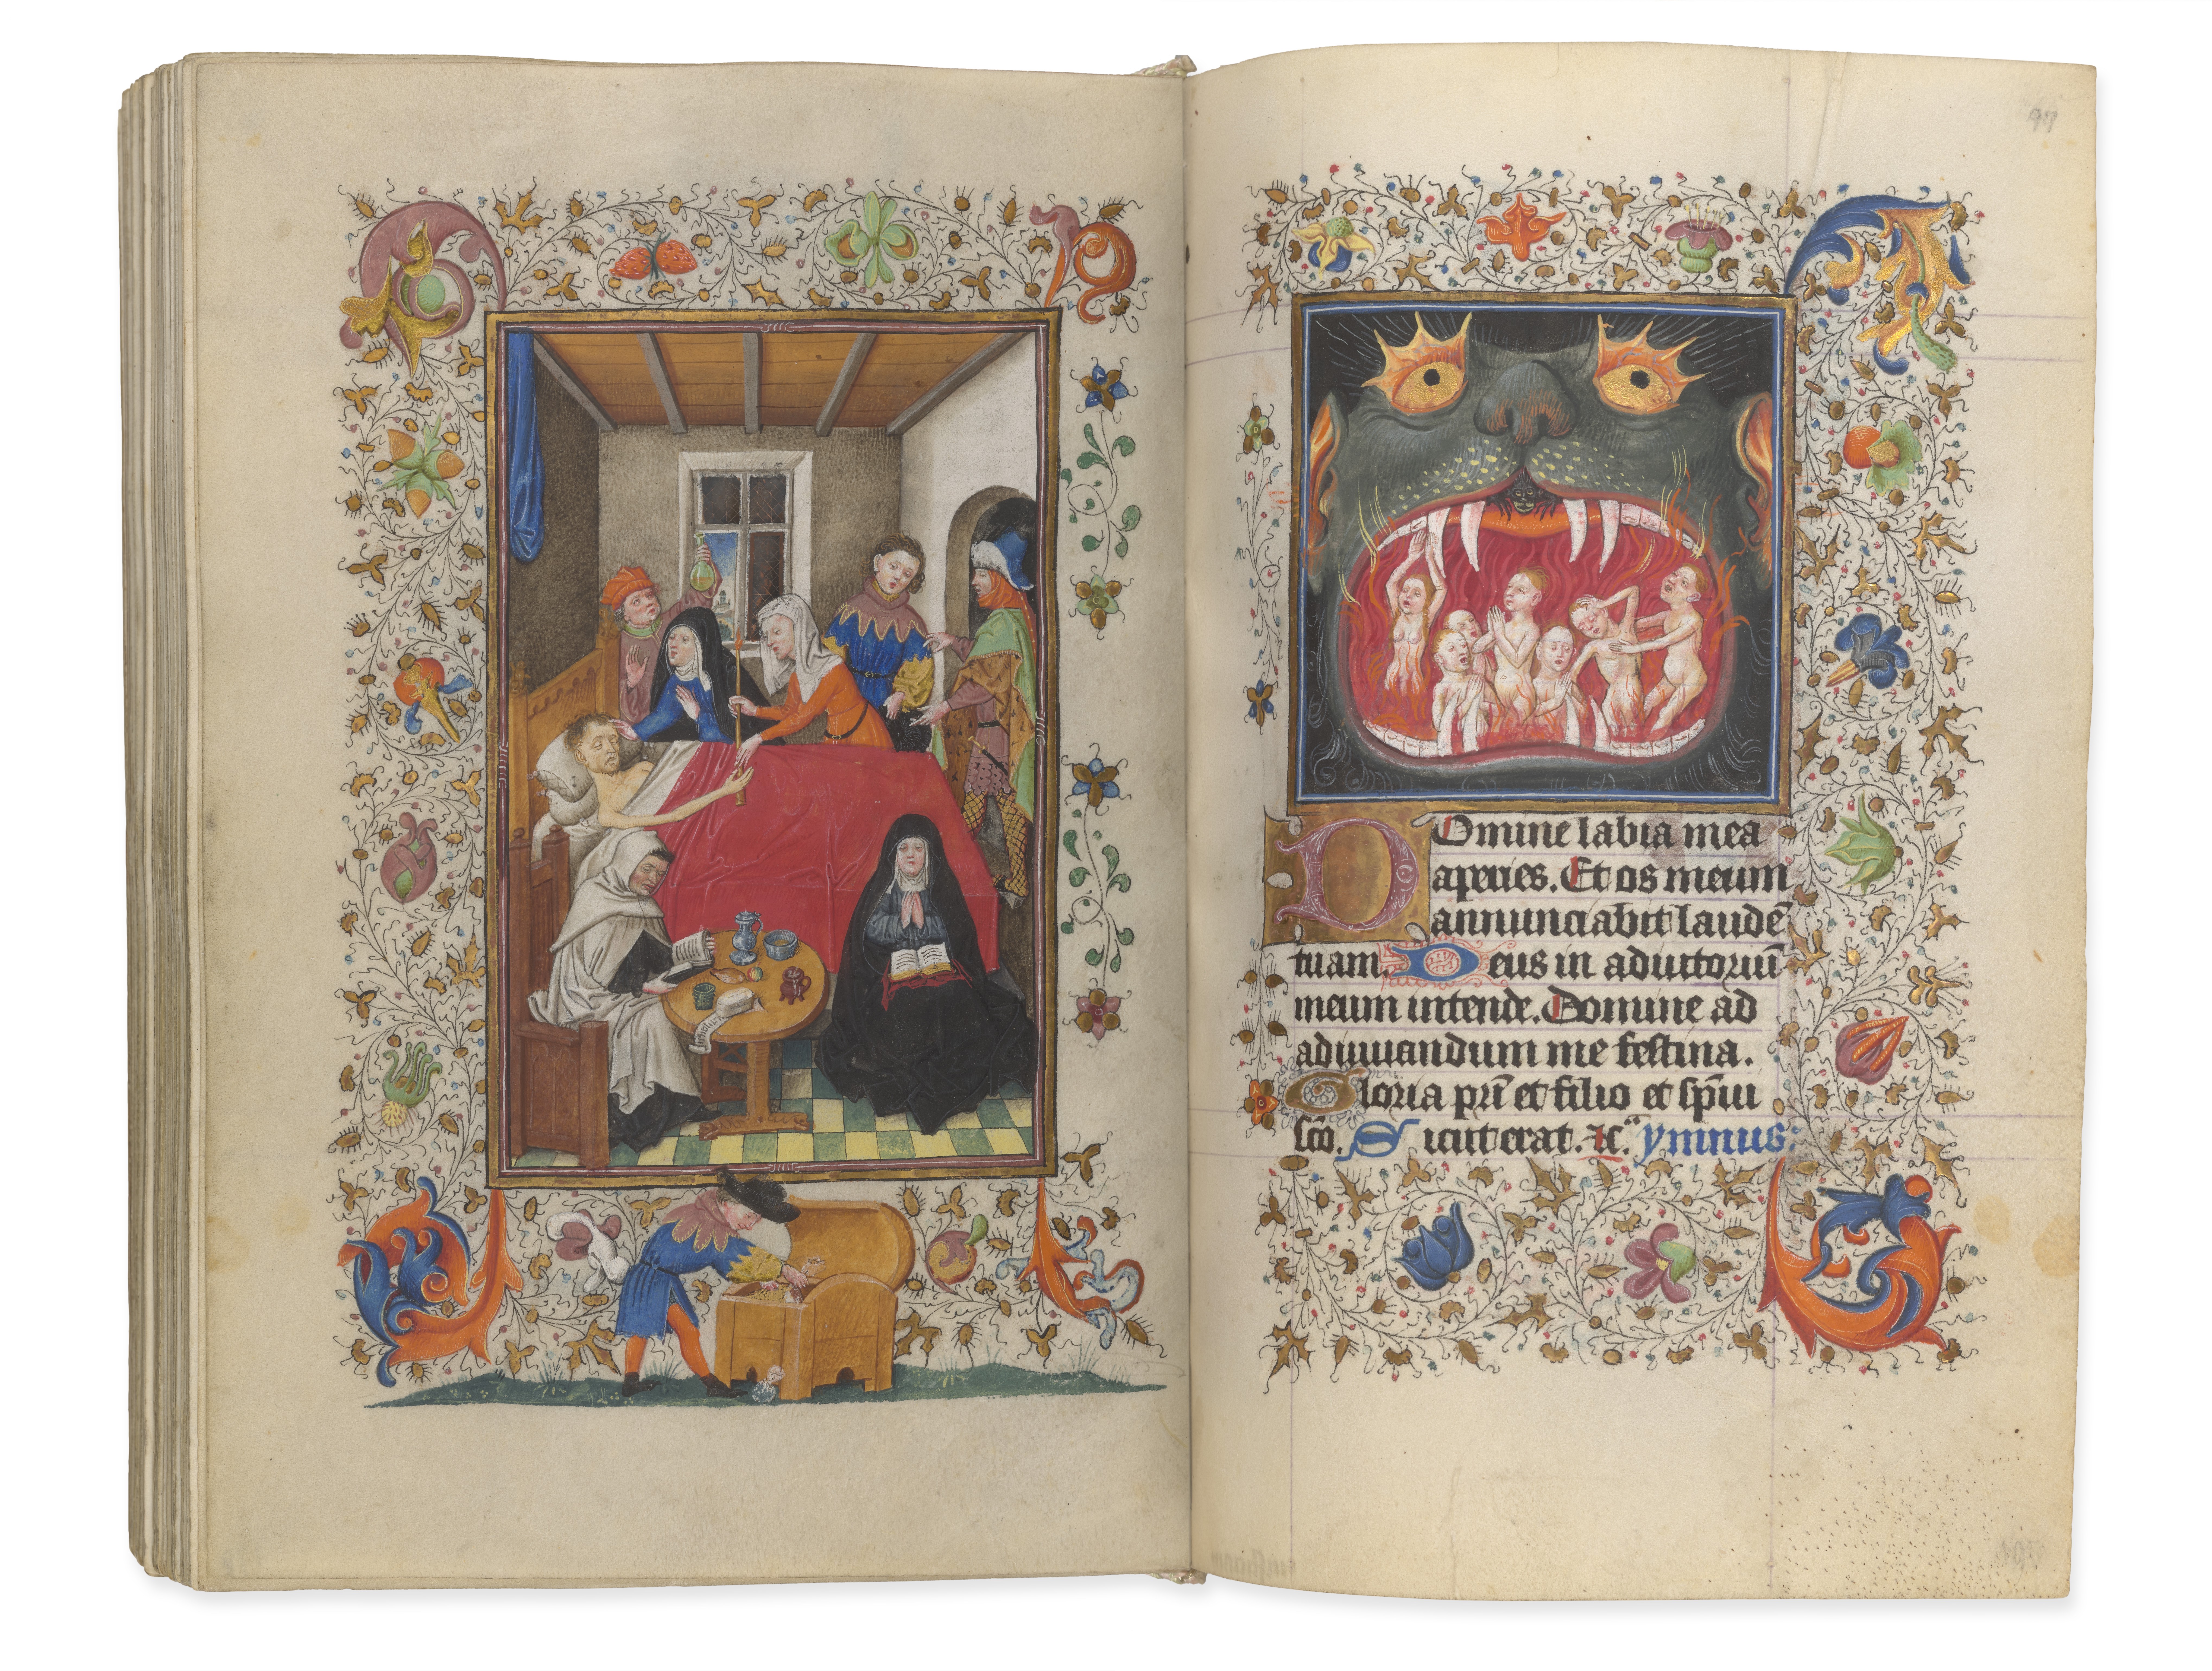 97
Domine labia mea
aperies. Et os meum
annunciabit laudē
tuam. Deus in adiutoriū
meum intende. Domine ad
adiuuandum me festina.
Gloria pri̅ et filio et sp̅ui
sc̅o. Sicut erat. ⁊c̅. ymnus: